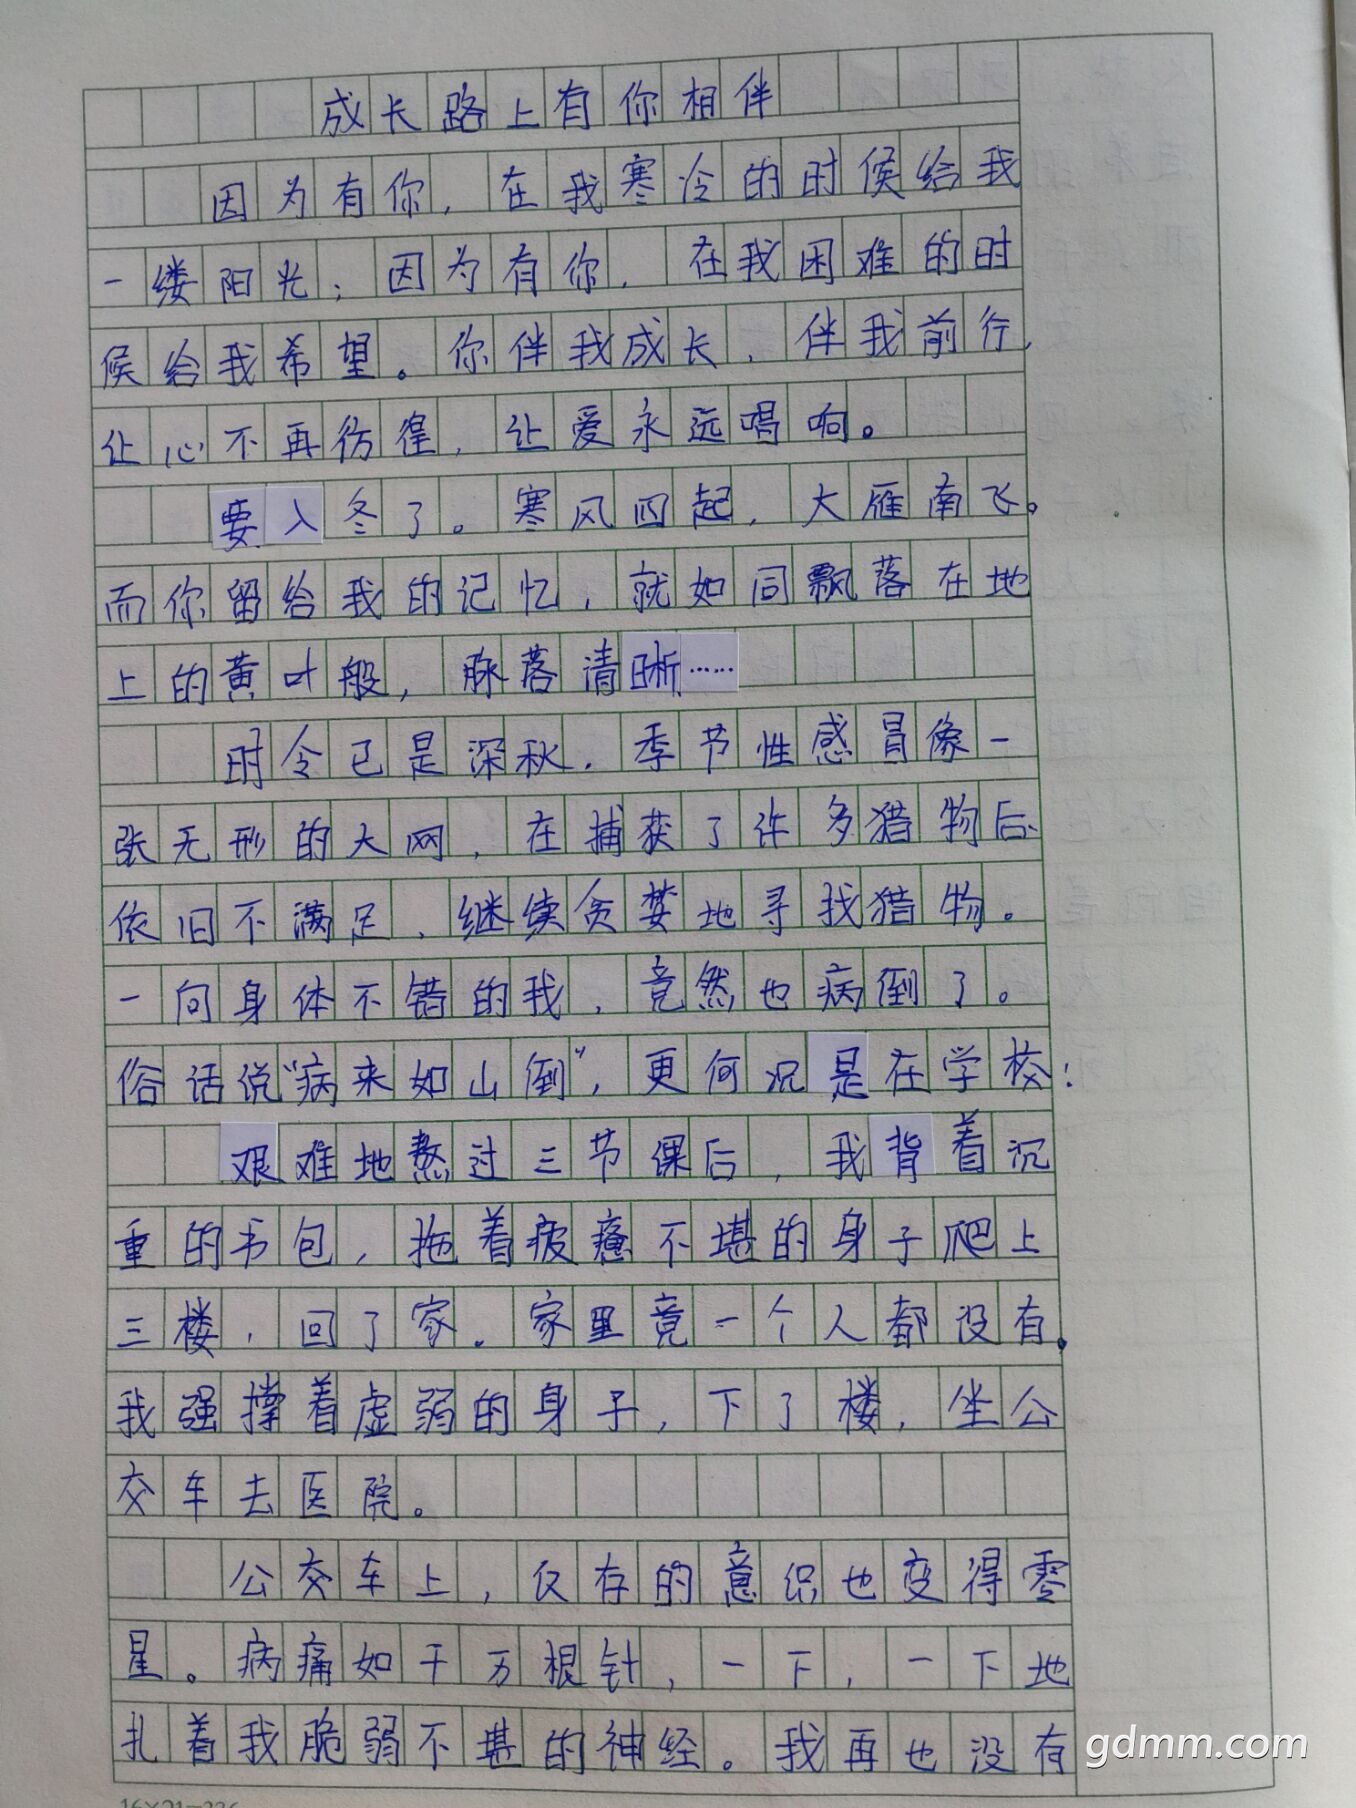 成长路上有你相伴
因为有你，在我寒冷的时候给我
一缕阳光；因为有你，在我困难的时
候给我希望。你伴我成长，伴我前行，
让心不再彷徨，让爱永远唱响。
要入冬了。寒风四起，大雁南飞。
而你留给我的记忆，就如同飘落在地
上的黄叶般，脉落清晰……
时令已是深秋，季节性感冒像一
张无形的大网，在捕获了许多猎物后、
依旧不满足，继续贪婪地寻找猎物。
一向身体不错的我，竟然也病倒了。
俗话说“病来如山倒”，更何况是在学校：
艰难地熬过三节课后，我背着沉
重的书包，拖着疲惫不堪的身子爬上
三楼，回了家。家里竟一个人都没有。
我强撑着虚弱的身子，下了楼，坐公
交车去医院。
公交车上，仅存的意识也变得零
星。病痛如千万根针，一下，一下地
扎着我脆弱不堪的神经。我再也没有
gdmm.com